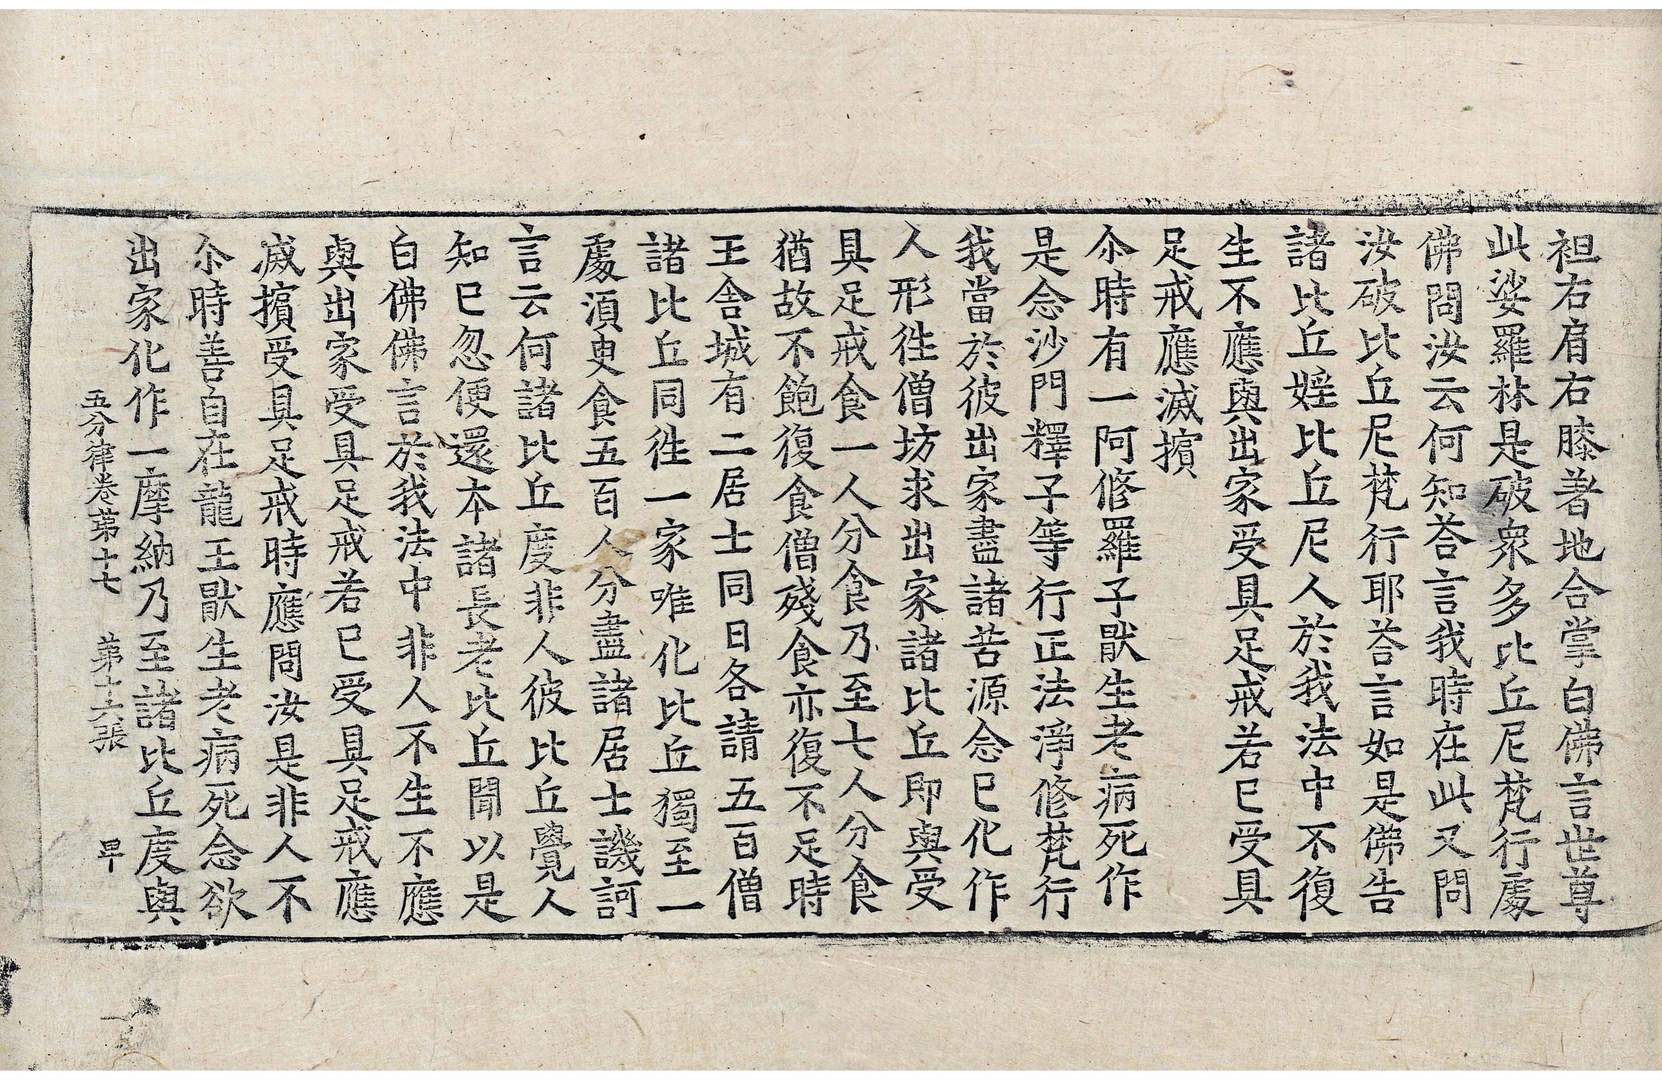 袒右肩右膝著地合掌白佛言世尊
此娑羅林是破衆多比丘尼梵行處
佛問汝云何知荅言我時在此又問
汝破比丘尼梵行耶荅言如是佛告
諸比丘婬比丘尼人於我法中不復
生不應與出家受具足戒若已受具
足戒應滅擯
尒時有一阿修羅子猒生老病死作
是念沙門釋子等行正法淨修梵行
我當於彼出家盡諸苦源念已化作
人形徃僧坊求出家諸比丘即與受
具足戒食一人分食乃至七人分食
猶故不飽復食僧殘食亦復不足時
王舍城有二居士同日各請五百僧
諸比丘同徃一家唯化比丘獨至一
處湏臾食五百人分盡諸居士譏訶
言云何諸比丘度非人彼比丘覺人
知已忽便還本諸長老比丘聞以是
白佛佛言於我法中非人不生不應
與出家受具足戒若已受具足戒應
滅擯受具足戒時應問汝是非人不
尒時善自在龍王猒生老病死念欲
出家化作一摩納乃至諸比丘度與
五分律卷第十七 第十六張 早